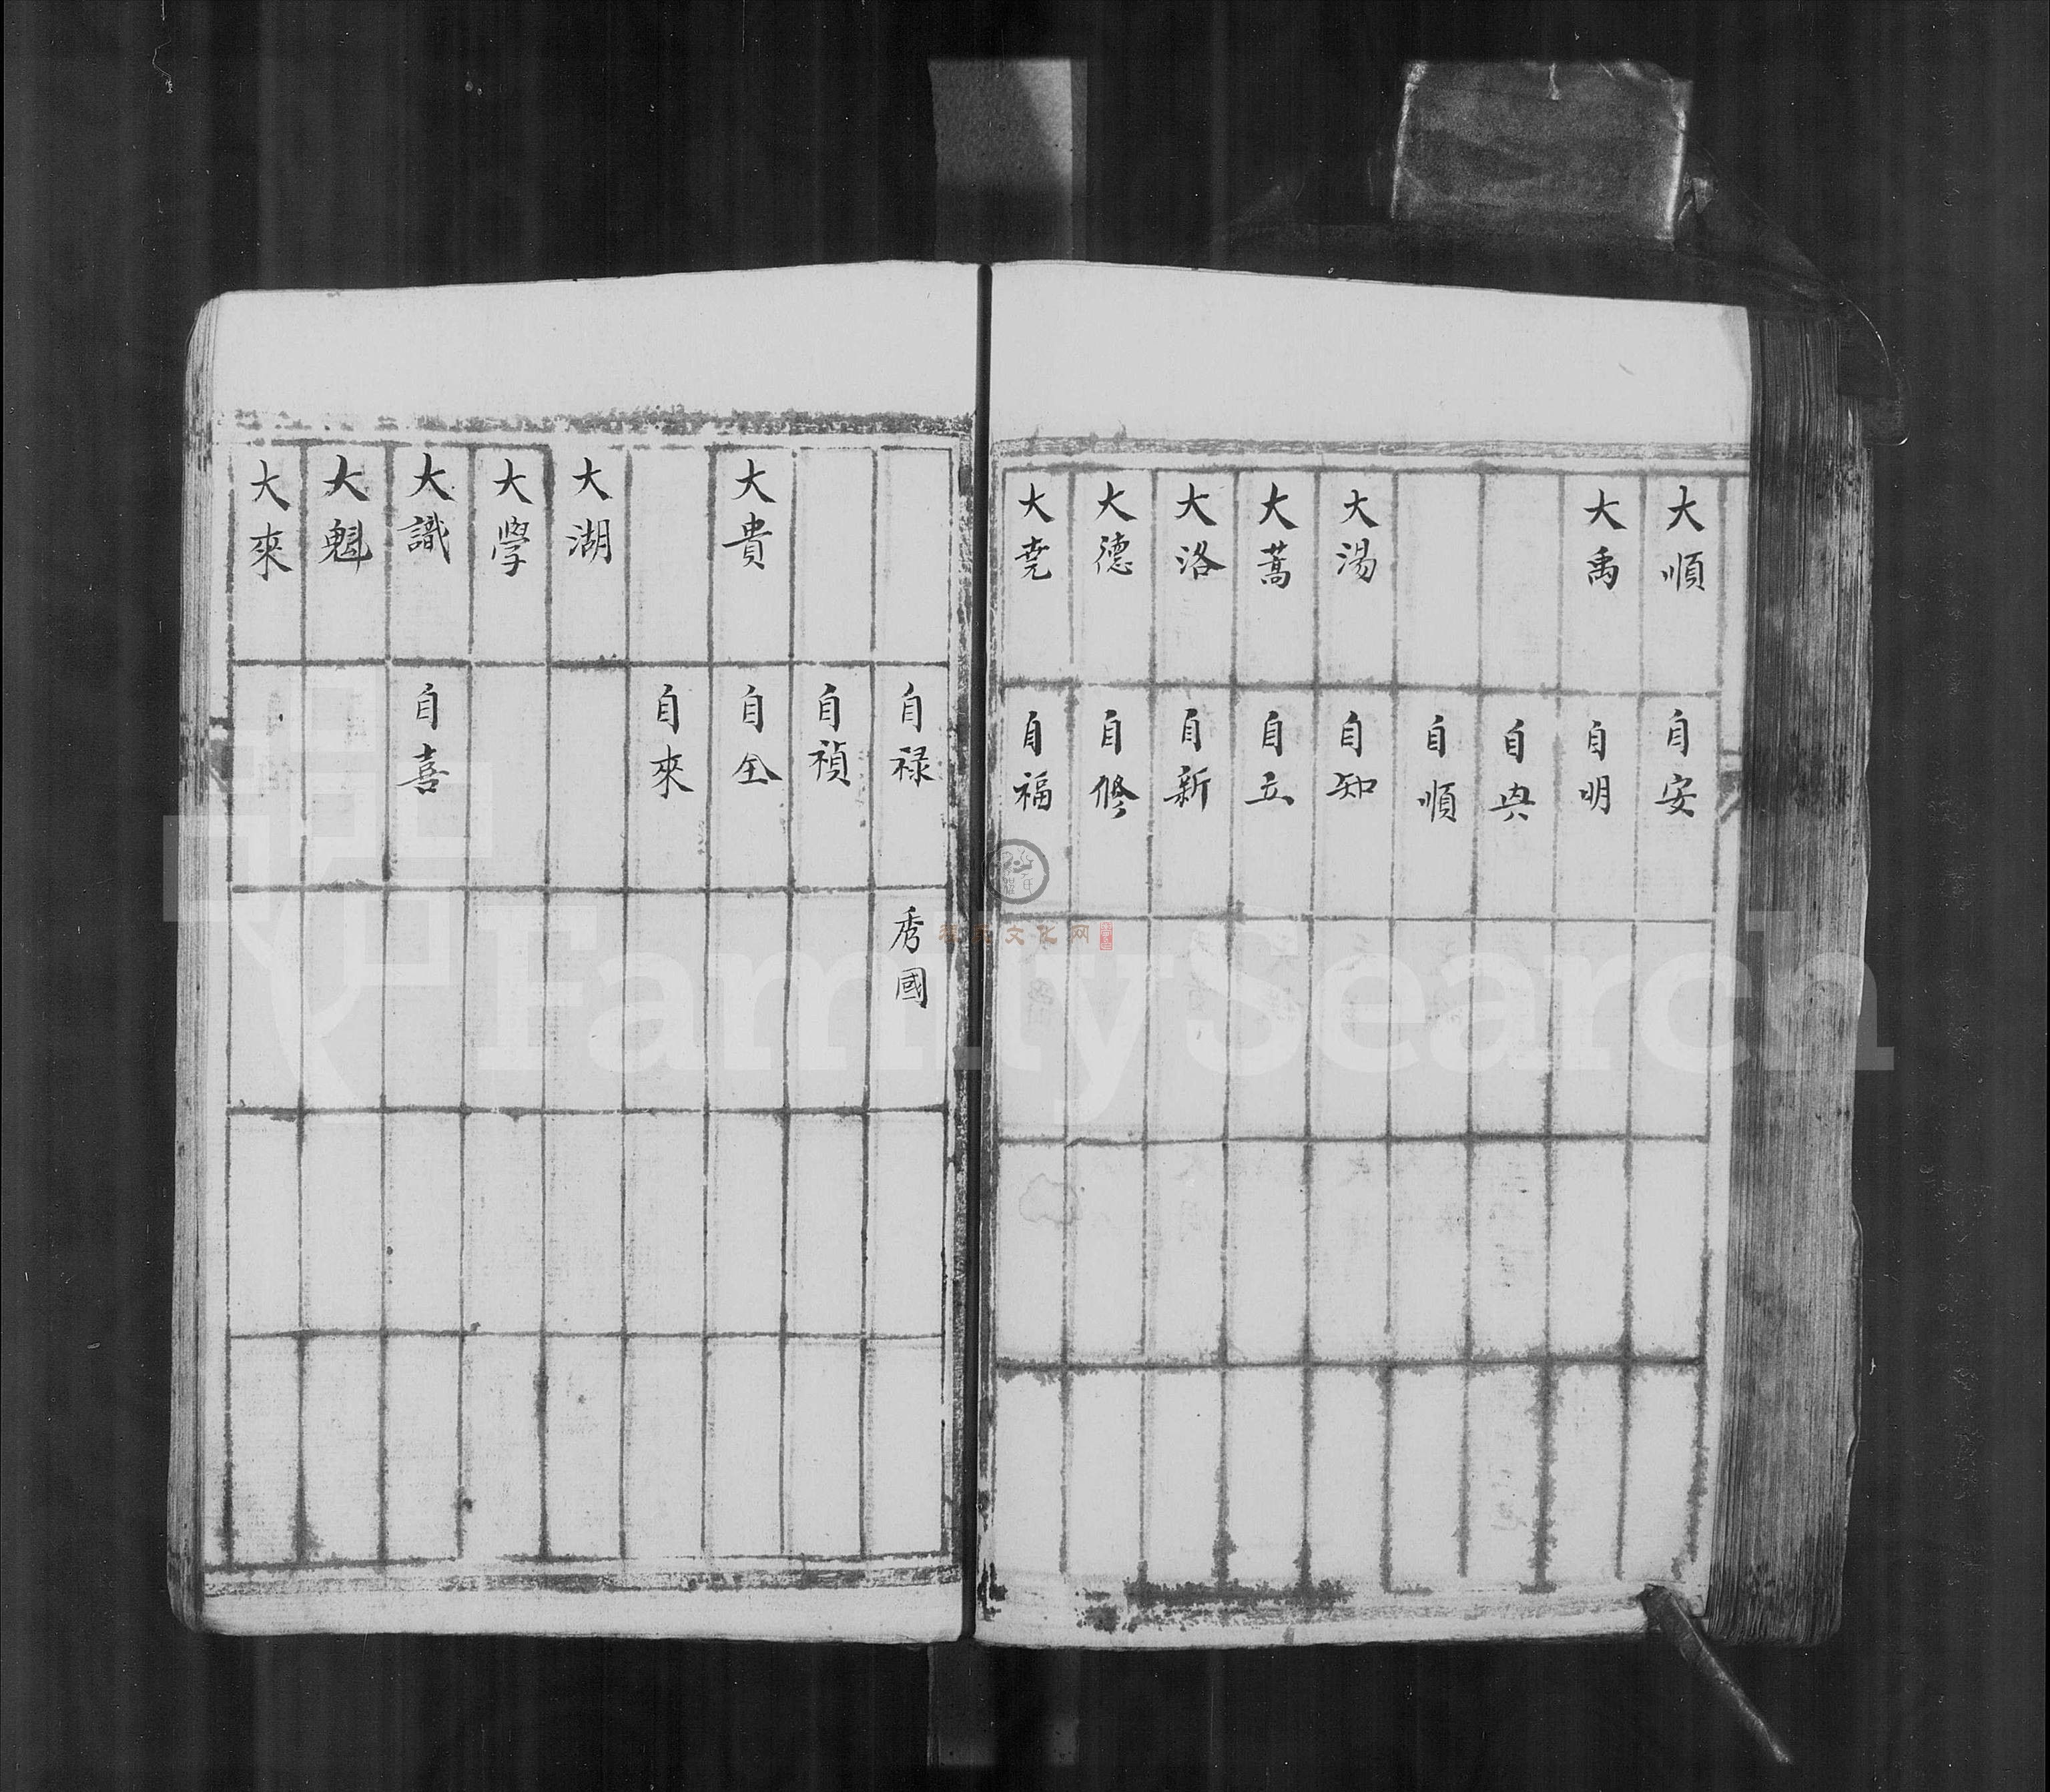 大順
自安
大禹
自明
自典
自順
大湯
自知
大蒿
自立
大洛
自新
大德
自修
大堯
自福
自禄
秀國
自禎
大貴
自全
自來
大湖
大學
大識
自喜
大魁
大來
FamilySearch